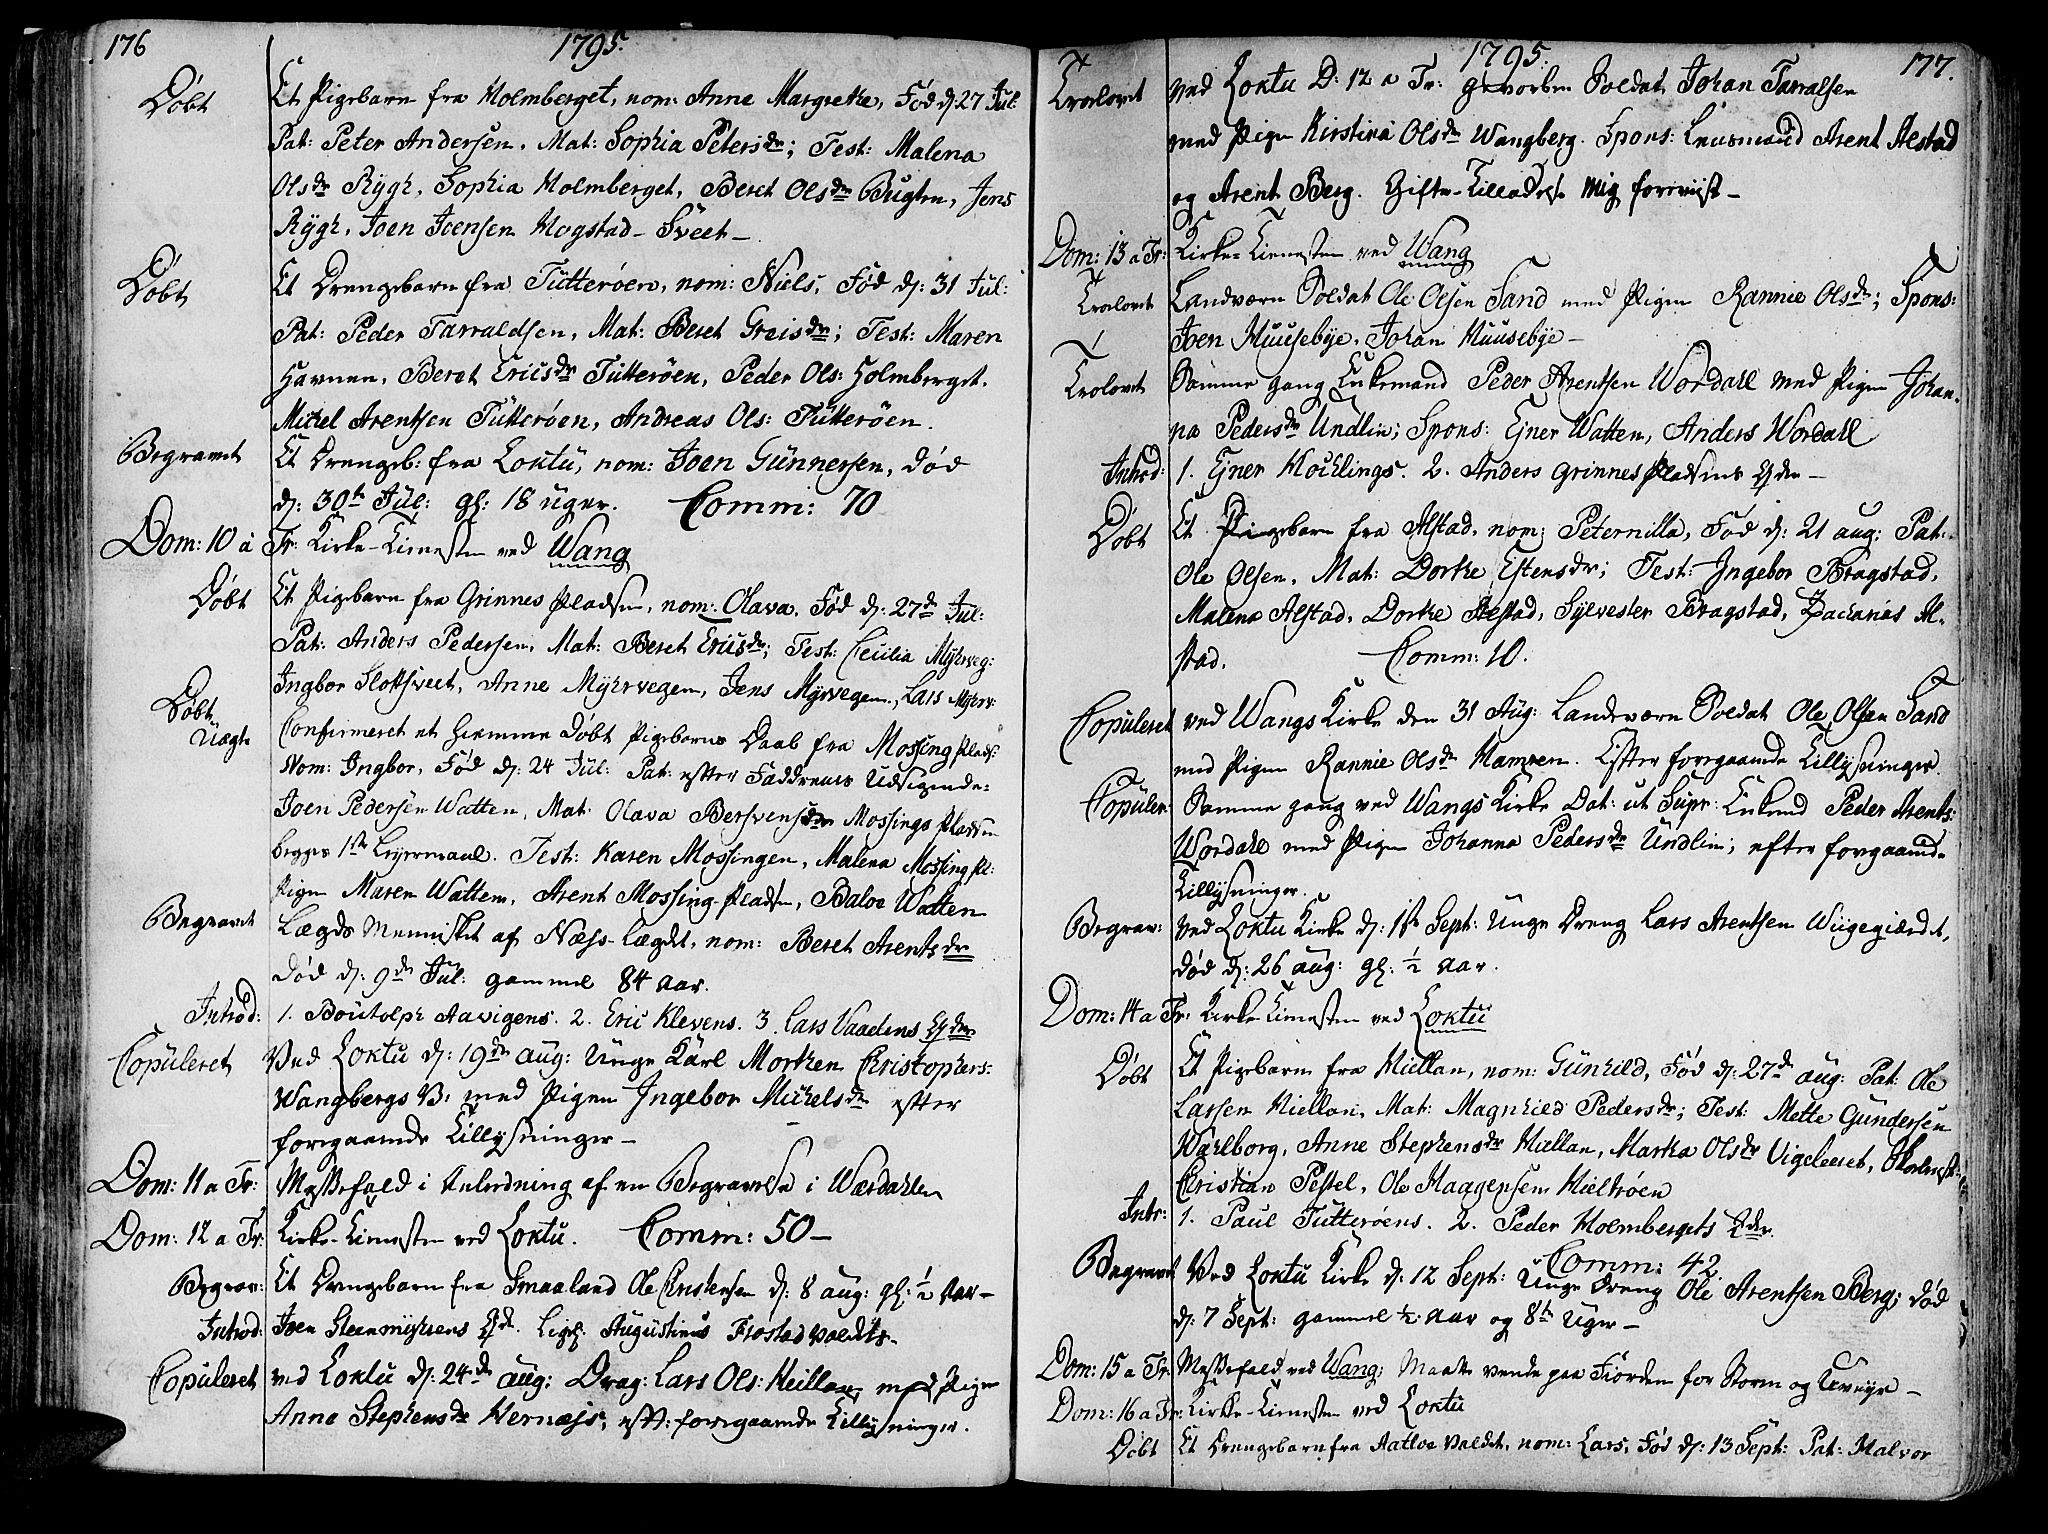 176
1795.
Døbt Et Pigebarn fra Holmberget, nom: Anne Margreke, Fød d: 27 Jul:
Pat: Peter Andersen. Mat: Sophia Petersdr; Test: Malena
Olsdr Rygh, Sophia Holmberget, Beret Olsdr Bugten, Jens
Rygh, Joen Joensen Hogstad-Sveet-
Døbt Et Drengebarn fra Tutterøen, nom: Niels, Fød d: 31 Jul:
Pat: Peder Tarraldsen, Mat: Beret Greisdr; Test: Maren
Havnen, Beret Ericsdr Tutterøen, Peder Ols: Holmberget.
Michel Arentsen Tutterøen, Andreas Ols: Tutterøen.
Begravet Et Drengeb: fra Loktu, nom: Joen Gunnersen, død
d: 30te Jul: gl: 18 uger. Comm: 70
Dom: 10 a Tr: Kirke-Tienesten ved Wang
Døbt Et Pigebarn fra Grinnes Pladsen, nom: Olava, Fød d: 27de Jul:
Pat: Anders Pedersen, Mat: Beret Ericsdr; Test: Cecilia Myhrveg:
Ingbor Slotsveet, Anne Myhrvegen, Jens Myrvegen, Lars Myhrv:
Døbt Uægte Confirmeret et hiemme døbt Pigebarns Daab fra Mossing Plads:
Nom: Ingbor, Fød d: 24 Jul: Pat: efter Faddrenes Udsigende:
Joen Pedersen Watten, Mat: Olava Bersvensdr Mossings Pladsen
begges 1ste Leyermaal. Test: Karen Mossingen, Malena Mossing Pl:
Pigen Maren Watten, Arent Mossing-Pladsen, Baloe Watten
Begravet Lægds Mennisket af Næss-Lægdet, nom: Beret Arentsdr
død d: 9de Jul: gammel 84 aar.
Introd: 1. Boutolph Aavigens. 2. Eric Klevens. 3. Lars Vaadens Qder
Copuleret Ved Loktu d: 19de aug: Unge Karl Morthen Christophers:
Wangbergs V: med Pigen Ingebor Michelsdr efter
foregaaende Tillysninger-
Dom: 11 a Tr: Messefald i Anledning af en Begravelse i Wærdahlen
Dom: 12 a Tr: Kirke-Tienesten ved Loktu. Comm: 50-
Begrav: Et Drengebarn fra Smaaland Ole Christensen d: 8 aug: gl: ½ Aar-
Introd: Joen Steenmyhrens Qde. Ligl: Augustinus Frostad valdets-
Copuleret ved Loktu d: 24de aug: Drag: Lars Ols: Heillan, med Pigen
Anne Stephensdr Hernæss; eft: foregaaende Tillysninger.
1795.
177.
Trolovet ved Loktu D: 12 a Tr: gevorben Soldat Johan Tarralsen
med Pigen Kirstina Olsdr Wangberg. Spons: Lensmand Arent Alstad
og Arent Berg. Gifte-Tilladelse mig foreviist-
Dom: 13 a Tr: Kirke-Tienesten ved Wang
Trolovet Landværn Soldat Ole Olsen Sand med Pigen Rannie Olsdr; Spons:
Joen Huusebye, Johan Huusebye-
Trolovet Samme gang Enkemand Peder Arentsen Wordall med Pigen Johan-
na Pedersdr Undlin; Spons: Ejner Watten, Anders Wordall
Introd: 1. Ejner Hochlings. 2. Anders Grinnes Pladsens Qder-
Døbt Et Pigebarn fra Alstad, nom: Peternilla, Fød d: 21 aug: Pat:
Ole Olsen, Mat: Dorthe Estensdr; Test: Ingebor Bragstad,
Malena Alstad, Dorthe Alstad, Sylvester Bragstad, Zacharias Al-
stad. Comm: 10.
Copuleret ved Wangs Kirke den 31 Aug: Landværn Soldat Ole Olsen Sand
med Pigen Rannie Olsdr Hamren. Efter foregaaende Tillysninger.
Copuler: Samme gang ved Wangs Kirke Dat: ut Supr: Enkemd Peder Arents:
Wordahl med Pigen Johanna Pedersdr Undlin; efter foregaaende
Tillysninger.
Begrav: ved Loktu Kirke d: 1ste Sept: Unge Dreng Lars Arentsen Wiigegiærdet,
død d: 26 aug: gl: ½ aar.
Dom: 14 a Tr: Kirke Tienesten ved Loktu
Døbt Et Pigebarn fra Hiellan, nom: Gunhild, Fød d: 27de aug: Pat: Ole
Larsen Hiellan, Mat: Magnhild Pedersdr; Test: Mette Gundersen
Wahlborg, Anne Stephensdr Hiellan, Martha Olsdr Vigeleeret, Skolemest:
Christian Pestel, Ole Haagensen Hieltrøen
Intr: 1. Paul Tutterøens. 2. Peder Holmbergets Qder.
Comm: 42
Begravet Ved Loktu Kirke d: 12 Sept: Unge Dreng Ole Arentsen Berg; død
d: 7 Sept: gammel ½ aar og 8te Uger-
Dom: 15 a Tr: Messefald ved Wang; Maatte vende paa Fiorden for Storm og Uveyr-
Dom: 16 a Tr: Kirke-Tienesten ved Loktu
Døbt Et Drengebarn fra Aatloe valdet, nom: Lars, Fød d: 13 Sept: Pat: Halvor